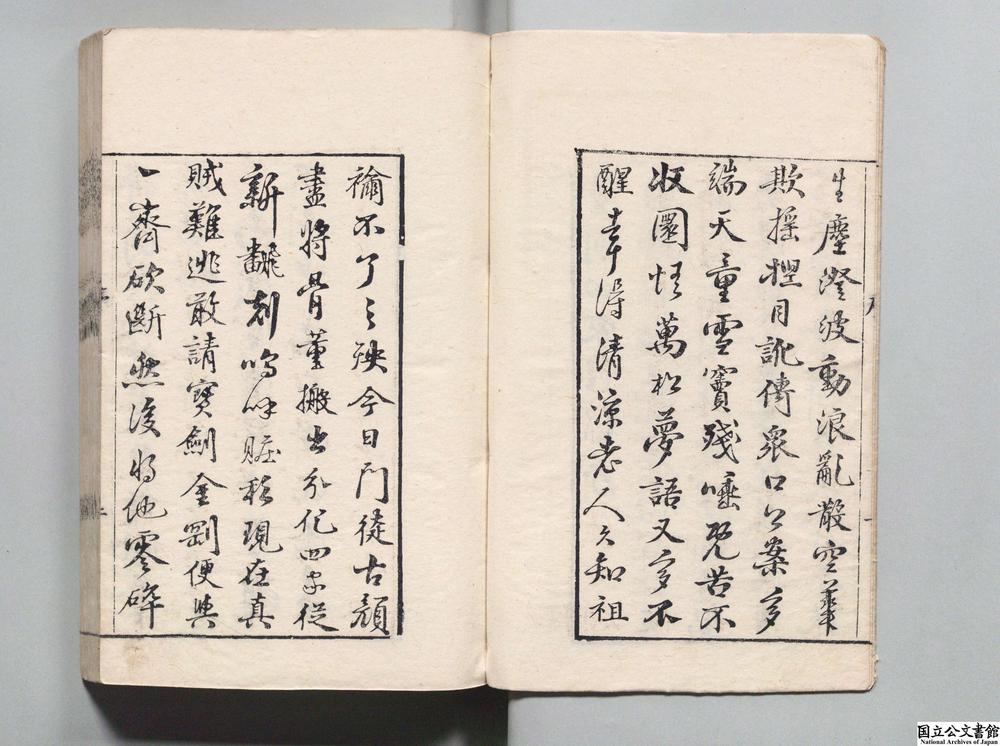 生塵澄波動浪亂散空華
欺搖捏目訛傳衆口公案多
端天童雪竇殘唾既苦不
收圜悟萬松夢語又多不
醒幸得清涼老人久知祖
禰不了之殃今日門徒古顏
盡將骨董搬出分作四家從
新翻刻嗚呼贓私現在真
賊難逃敢請寶劍金剛便與
一齊砍斷然後將他零碎
国立公文書館
National Archives of Japan